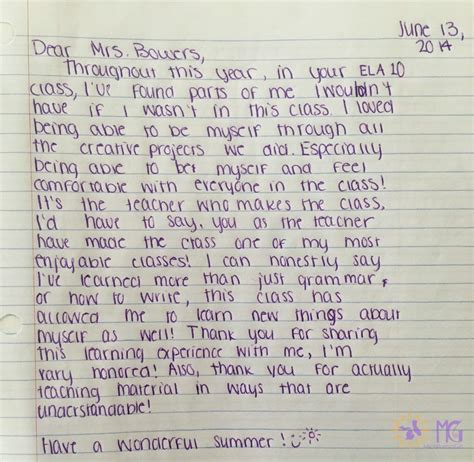 June 13,
2014
Dear Mrs. Bowers,
Throughout this year, in your ELA 10
class, I've found parts of me I wouldn't
have if I wasn't in this class. I loved
being able to be myself through all
the creative projects we did. Especially
being able to be myself and feel
comfortable with everyone in the class!
It's the teacher who makes the class,
I'd have to say, you as the teacher
have made the class one of my most
enjoyable classes! I can honestly say
I've learned more than just grammar,
or how to write, this class has
allowed me to learn new things about
myself as well! Thank you for sharing
this learning experience with me, I'm
vary honored! Also, thank you for actually
teaching material in ways that are
understandable!
Have a wonderful summer!
MG